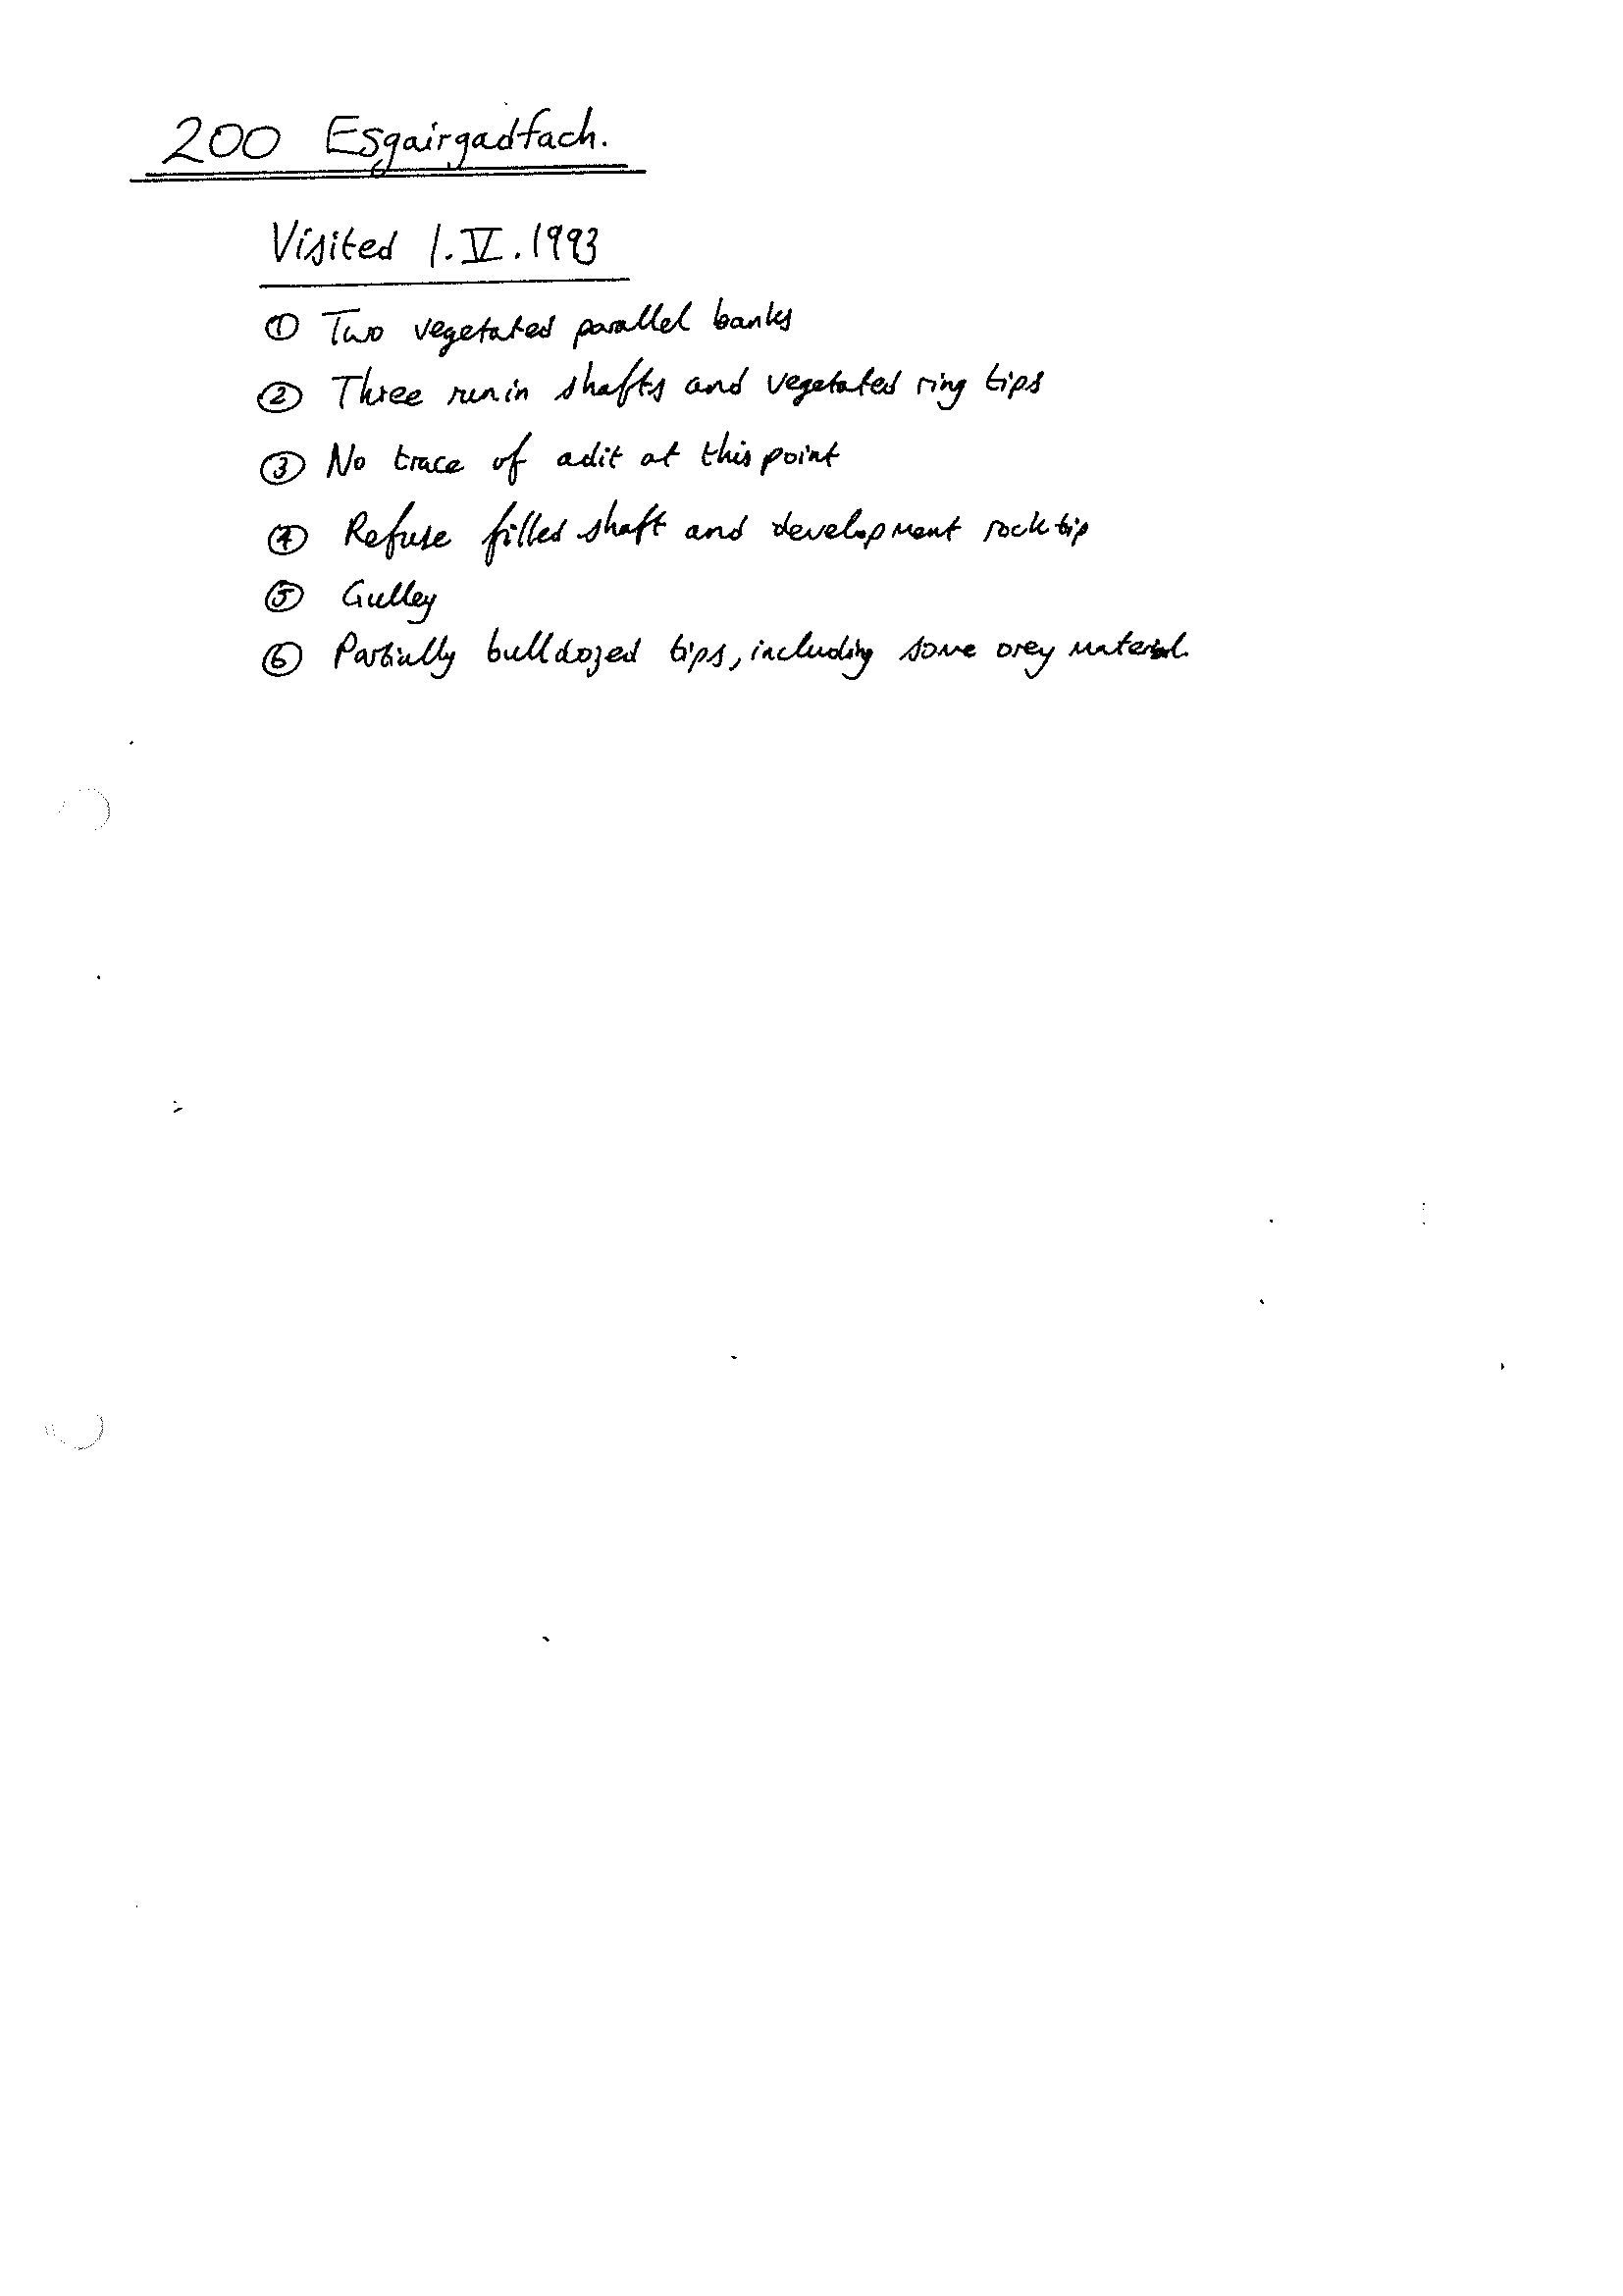 200 Esgairgadfach.
Visited 1.V.1993
① Two vegetated parallel banks
② Three run in shafts and vegetated ring tips
③ No trace of adit at this point
④ Refuse filled shaft and development rock tip
⑤ Gulley
⑥ Partially bulldozed tips, including some orey material.